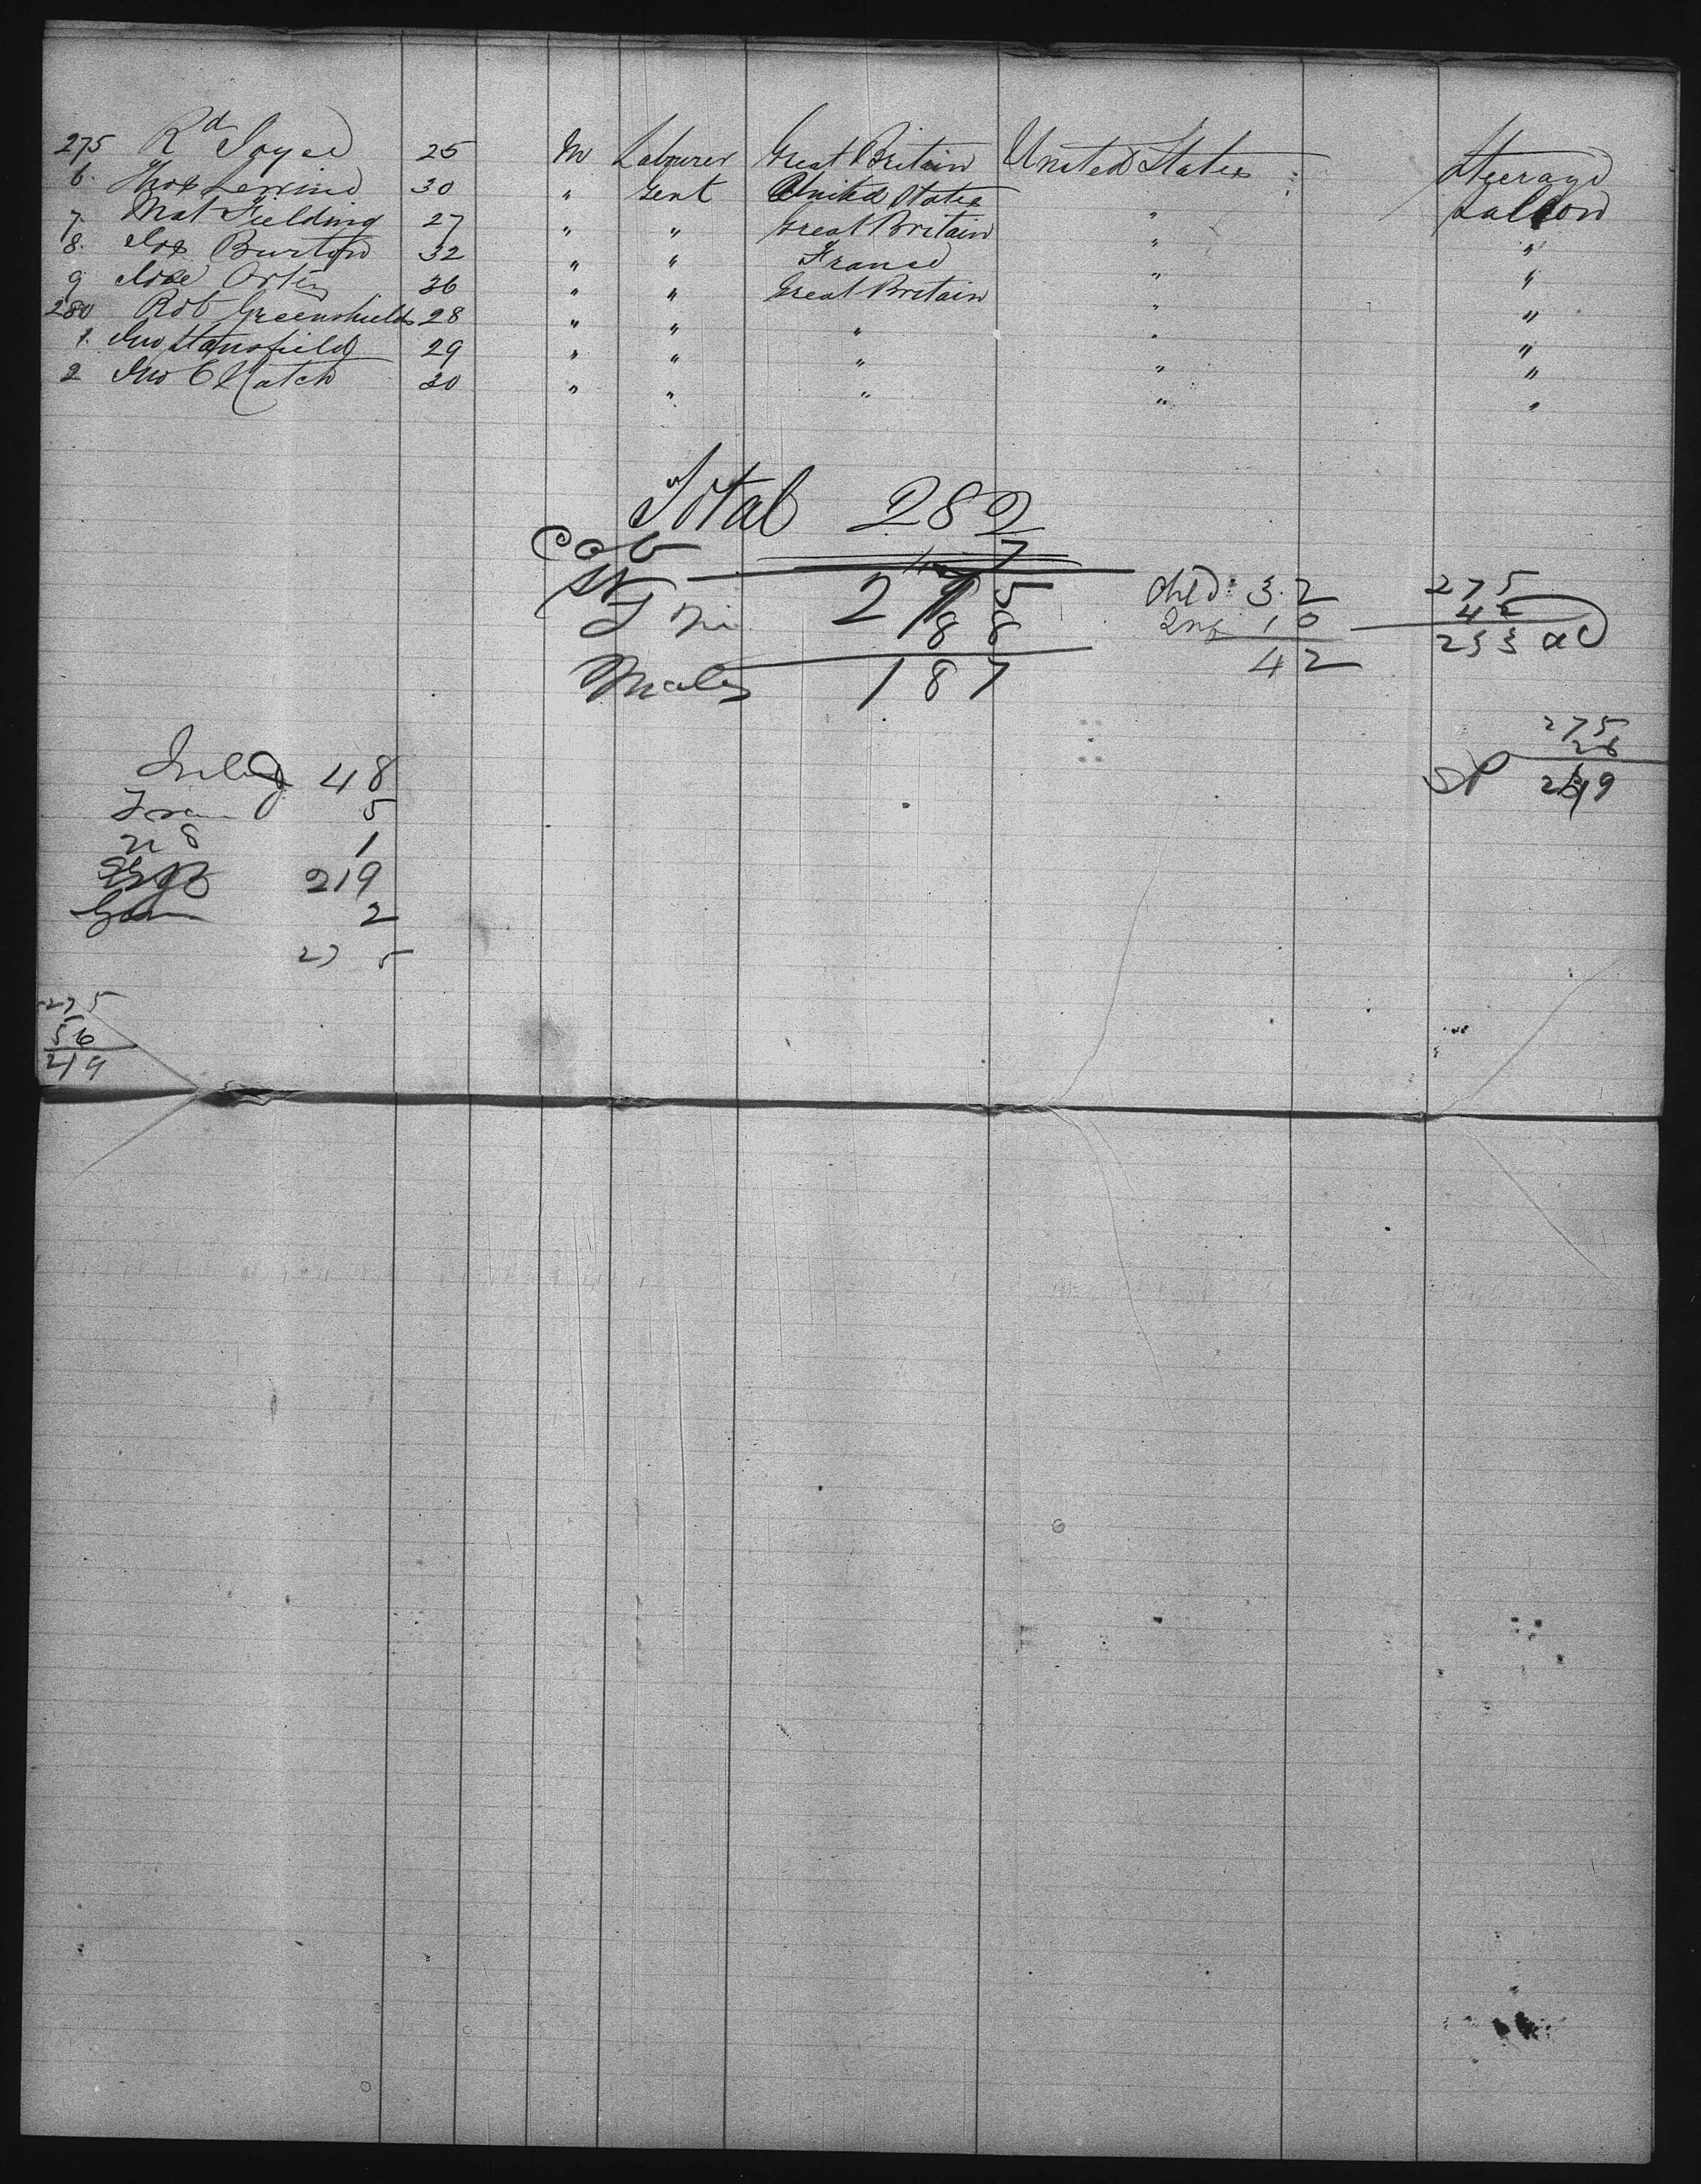 275 Rd Joyce 25 M Labourer Great Britain United States Steerage
6. Thos 30 " Gent United States " Saloon
7. Mat Fielding 27 " " Great Britain " "
8. Jos Burton 32 " " France " "
9 36 " " Great Britain " "
280 Rob Greenshields 28 " " " " "
1. Jno Stansfield 29 " " " " "
2 Jno C Hatch 30 " " " " "
Total 282
Cab 7
275
88
Males 187
Chld: 32
Inf 10
42
275
42
233
275
26
249
Irelad 48
Fran 5
1
219
Ger 2
275
275
56
219